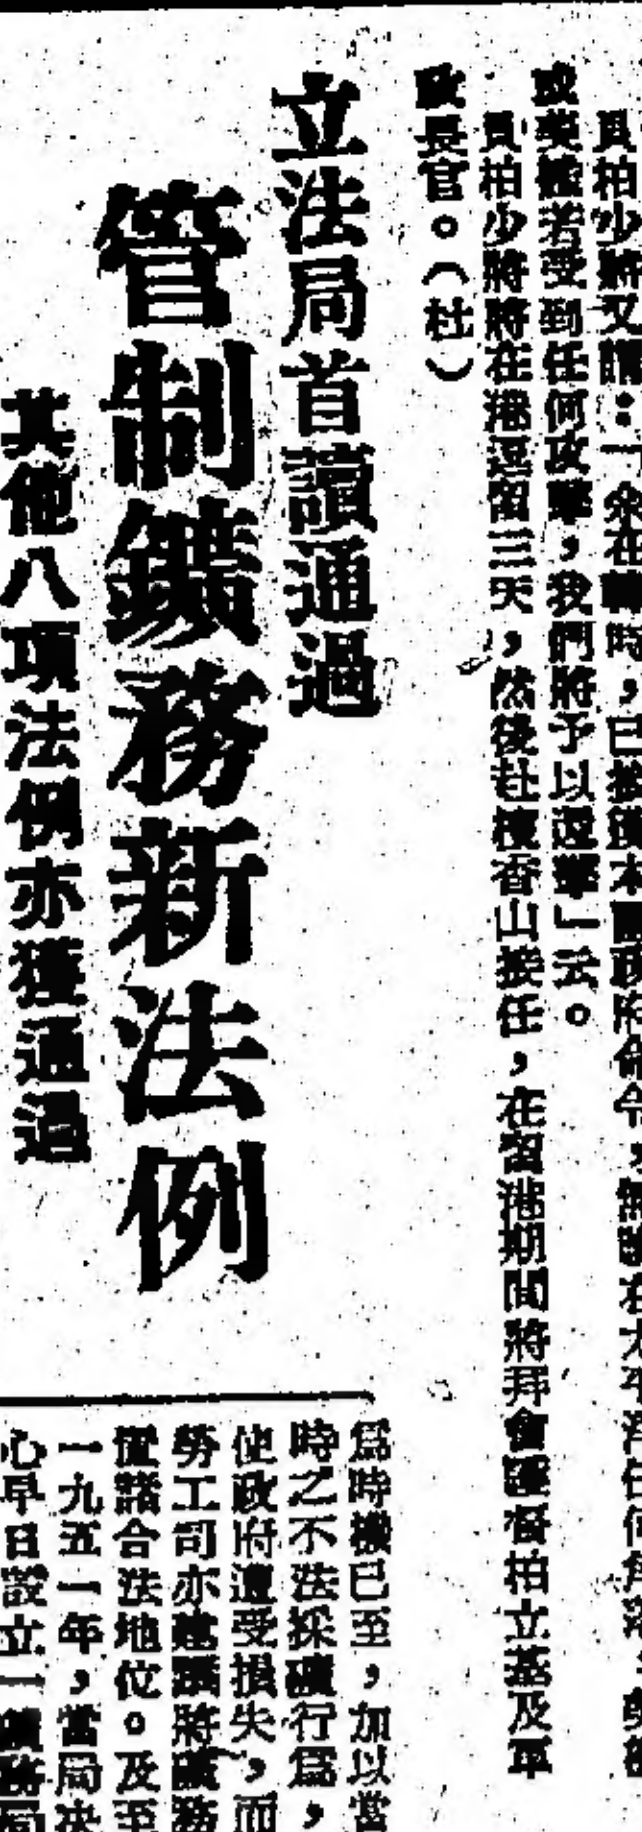 員柏少將又謂：「余在韓時，已接獲本國政府命令，無論在太平洋任何角落，
或英權若受到任何攻擊，我們將予以還擊」云。
員柏少將將在港逗留三天，然後赴檀香山接任，在留港期間將拜會護督柏立基及軍
政長官。（杜）
立法局首讀通過
管制鑛務新法例
其他八項法例亦獲通過
爲時機已至，加以當
時之不法採礦行爲，
使政府遭受損失，而
勞工司亦建議將礦務
置諸合法地位。及至
一九五一年，當局決
心早日設立一鑛務局